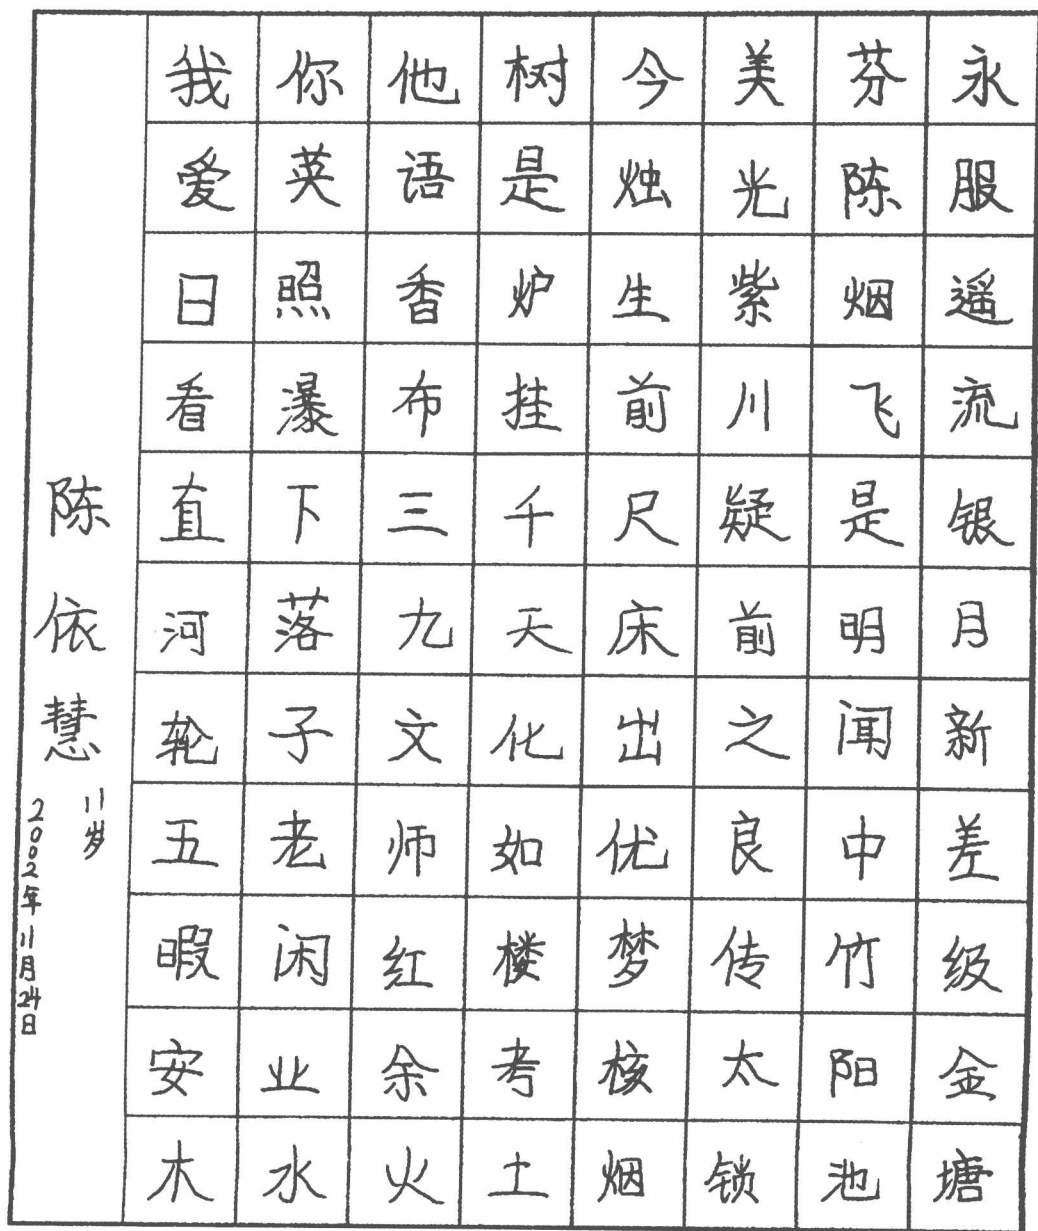 我你他树今美芬永
爱英语是烛光陈服
日照香炉生紫烟遥
看瀑布挂前川飞流
直下三千尺疑是银
河落九天床前明月
轮子文化出之闻新
五老师如优良中差
暇闲红楼梦传竹级
安业余考核太阳金
木水火土烟锁池塘
陈依慧
11岁
2002年11月24日